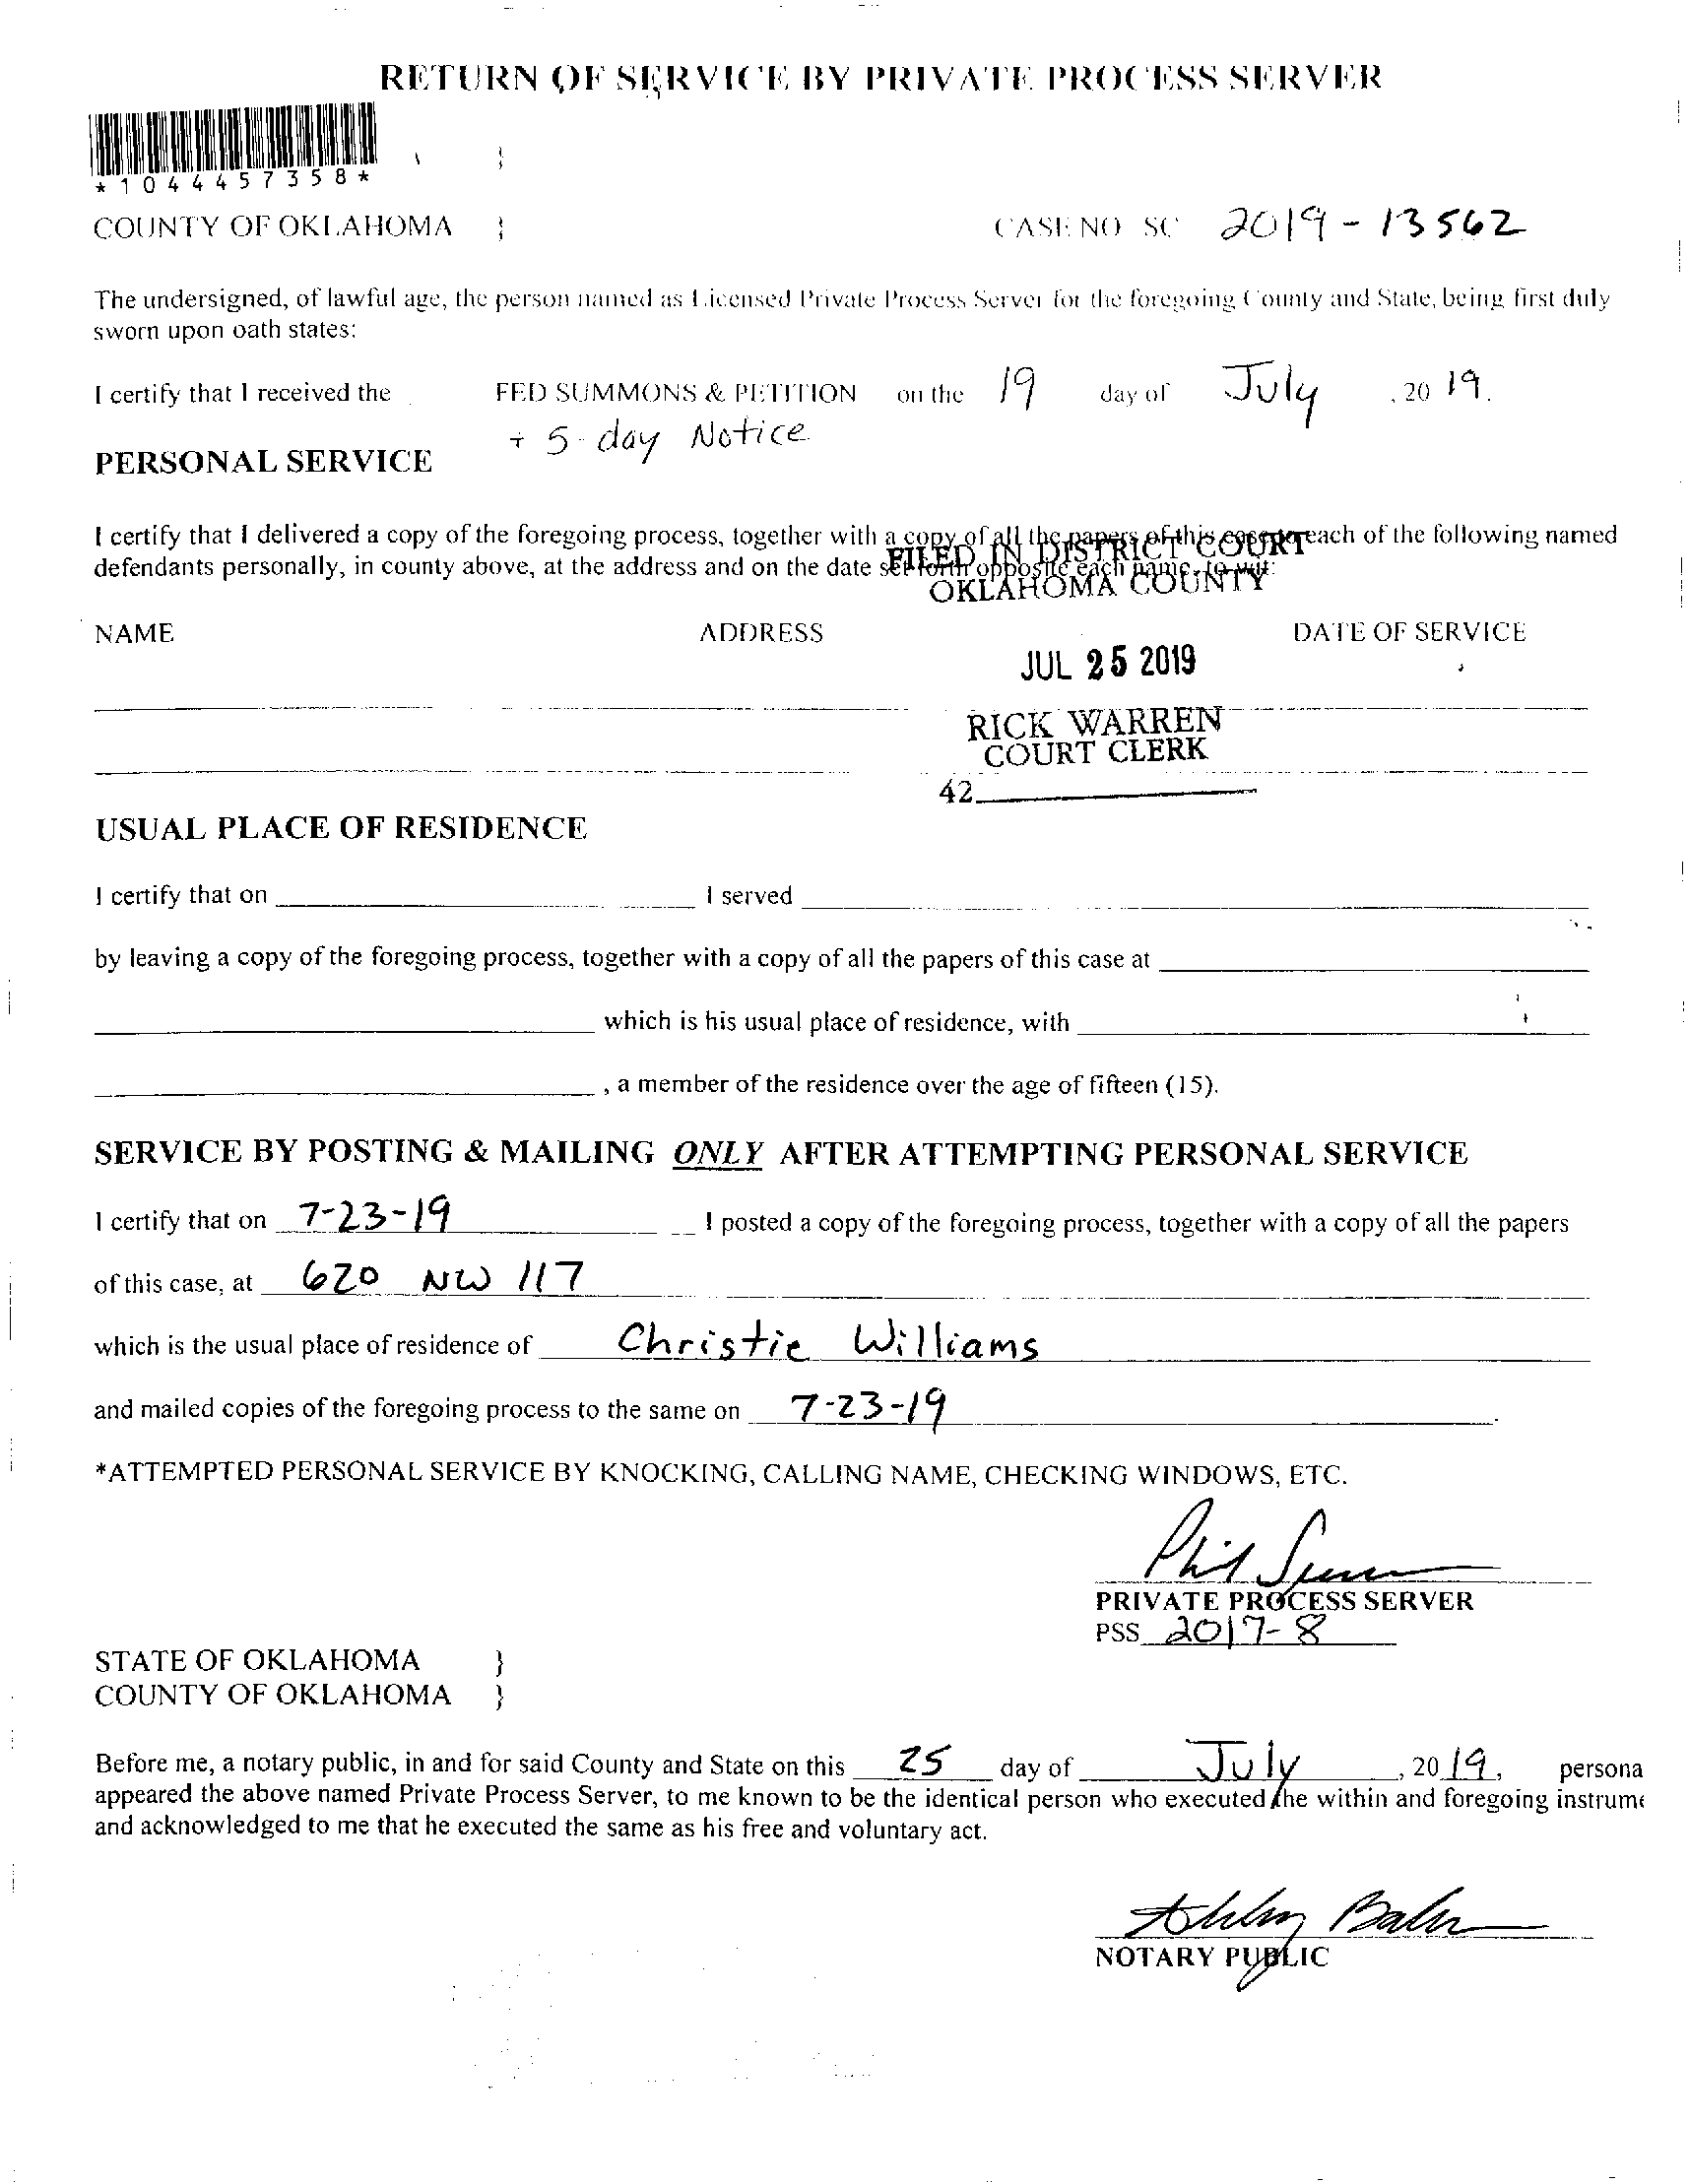 RETURN OF SERVICE BY PRIVATE PROCESS SERVER
*1044457358*
}
COUNTY OF OKLAHOMA }
CASE NO SC 2019-13562
The undersigned, of lawful age, the person named as Licensed Private Process Server for the foregoing County and State, being first duly
sworn upon oath states:
I certify that I received the FED SUMMONS & PETITION on the 19 day of July , 20 19.
+ 5-day Notice
PERSONAL SERVICE
I certify that I delivered a copy of the foregoing process, together with a copy of all the papers of this case to each of the following named
defendants personally, in county above, at the address and on the date set forth opposite each name, to-wit:
FILED IN DISTRICT COURT
OKLAHOMA COUNTY
NAME ADDRESS DATE OF SERVICE
JUL 25 2019
RICK WARREN
COURT CLERK
42
USUAL PLACE OF RESIDENCE
I certify that on I served
by leaving a copy of the foregoing process, together with a copy of all the papers of this case at
which is his usual place of residence, with
, a member of the residence over the age of fifteen (15).
SERVICE BY POSTING & MAILING ONLY AFTER ATTEMPTING PERSONAL SERVICE
I certify that on 7-23-19 I posted a copy of the foregoing process, together with a copy of all the papers
of this case, at 620 NW 117
which is the usual place of residence of Christie Williams
and mailed copies of the foregoing process to the same on 7-23-19.
*ATTEMPTED PERSONAL SERVICE BY KNOCKING, CALLING NAME, CHECKING WINDOWS, ETC.
Phil
PRIVATE PROCESS SERVER
PSS 2017-8
STATE OF OKLAHOMA }
COUNTY OF OKLAHOMA }
Before me, a notary public, in and for said County and State on this 25 day of July , 20 19, persona
appeared the above named Private Process Server, to me known to be the identical person who executed the within and foregoing instrume
and acknowledged to me that he executed the same as his free and voluntary act.
NOTARY PUBLIC